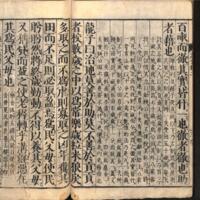 百畝而徹其實皆什一也徹者徹也助
者藉也
龍子曰治地莫善於助莫不善於貢貢
者校數歲之中以爲常樂歲粒米狼戾
多取之而不爲虐則寡取之凶年糞其
田而不足則必取盈焉爲民父母使民
盻盻然將終歲勤動不得以養其父母
又稱貸而益之使老稚轉乎溝壑惡在
其爲民父母也